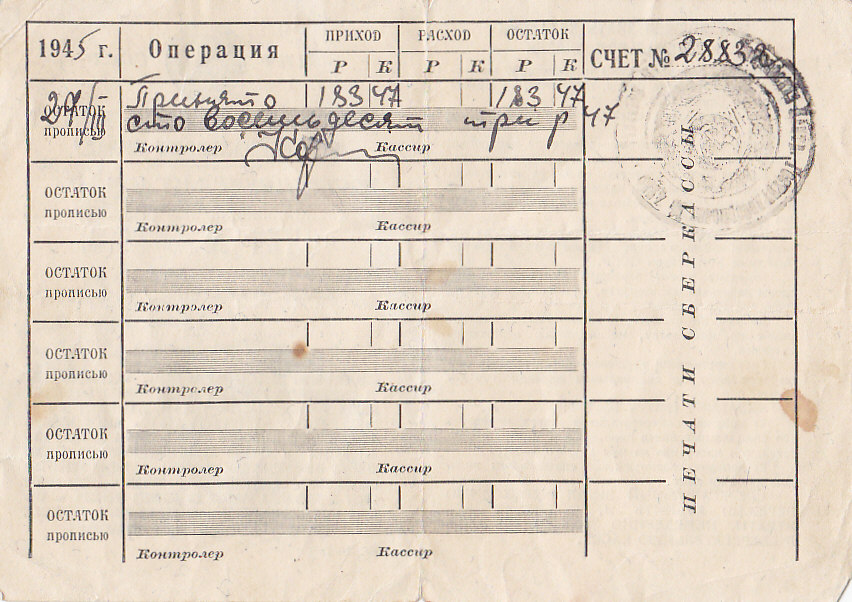 1945 г. Операция ПРИХОД РАСХОД ОСТАТОК СЧЕТ №
Р К Р К Р К
Принято 183 47 183 47
ОСТАТОК прописью сто восемьдесят три р 47
Контролер
ОСТАТОК
прописью
Контролер Кассир
ОСТАТОК
прописью
Контролер Кассир
ОСТАТОК
прописью
Контролер Кассир
ОСТАТОК
прописью
Контролер Кассир
ОСТАТОК
прописью
Контролер Кассир
ПЕЧАТИ СБЕРКАССЫ